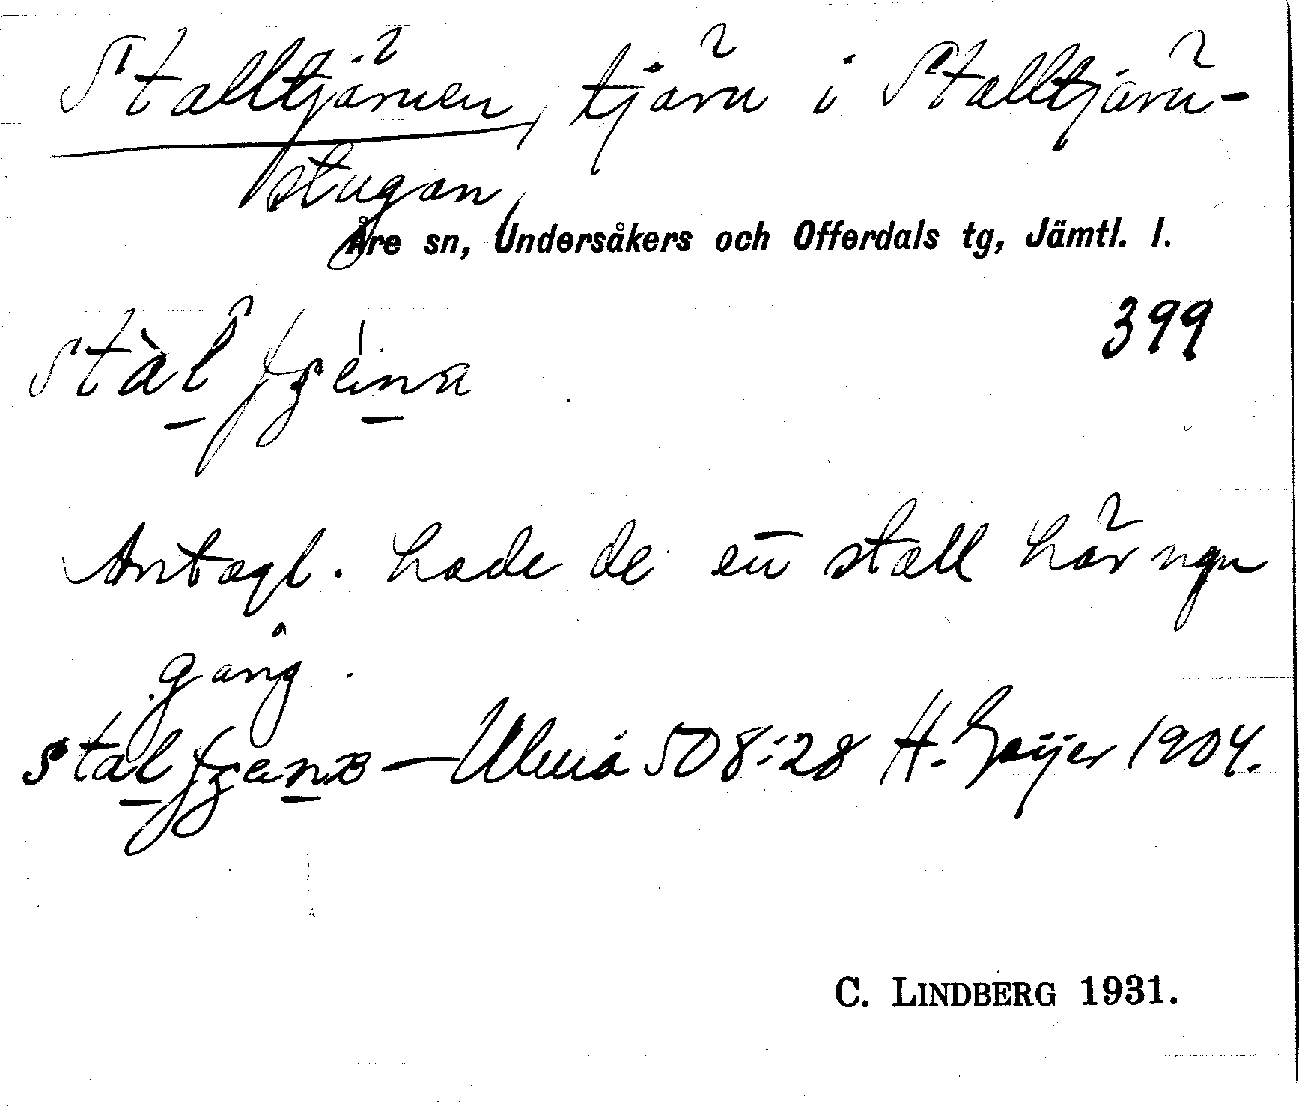 Stalltjärnen, tjärn i Stalltjärn-
stugan,
Åre sn, Undersåkers och Offerdals tg, Jämtl. l.
399
Antagl. hade de ett stall här ngn
gång.
Umeå 508:28 H. Geijer 1904.
C. LINDBERG 1931.